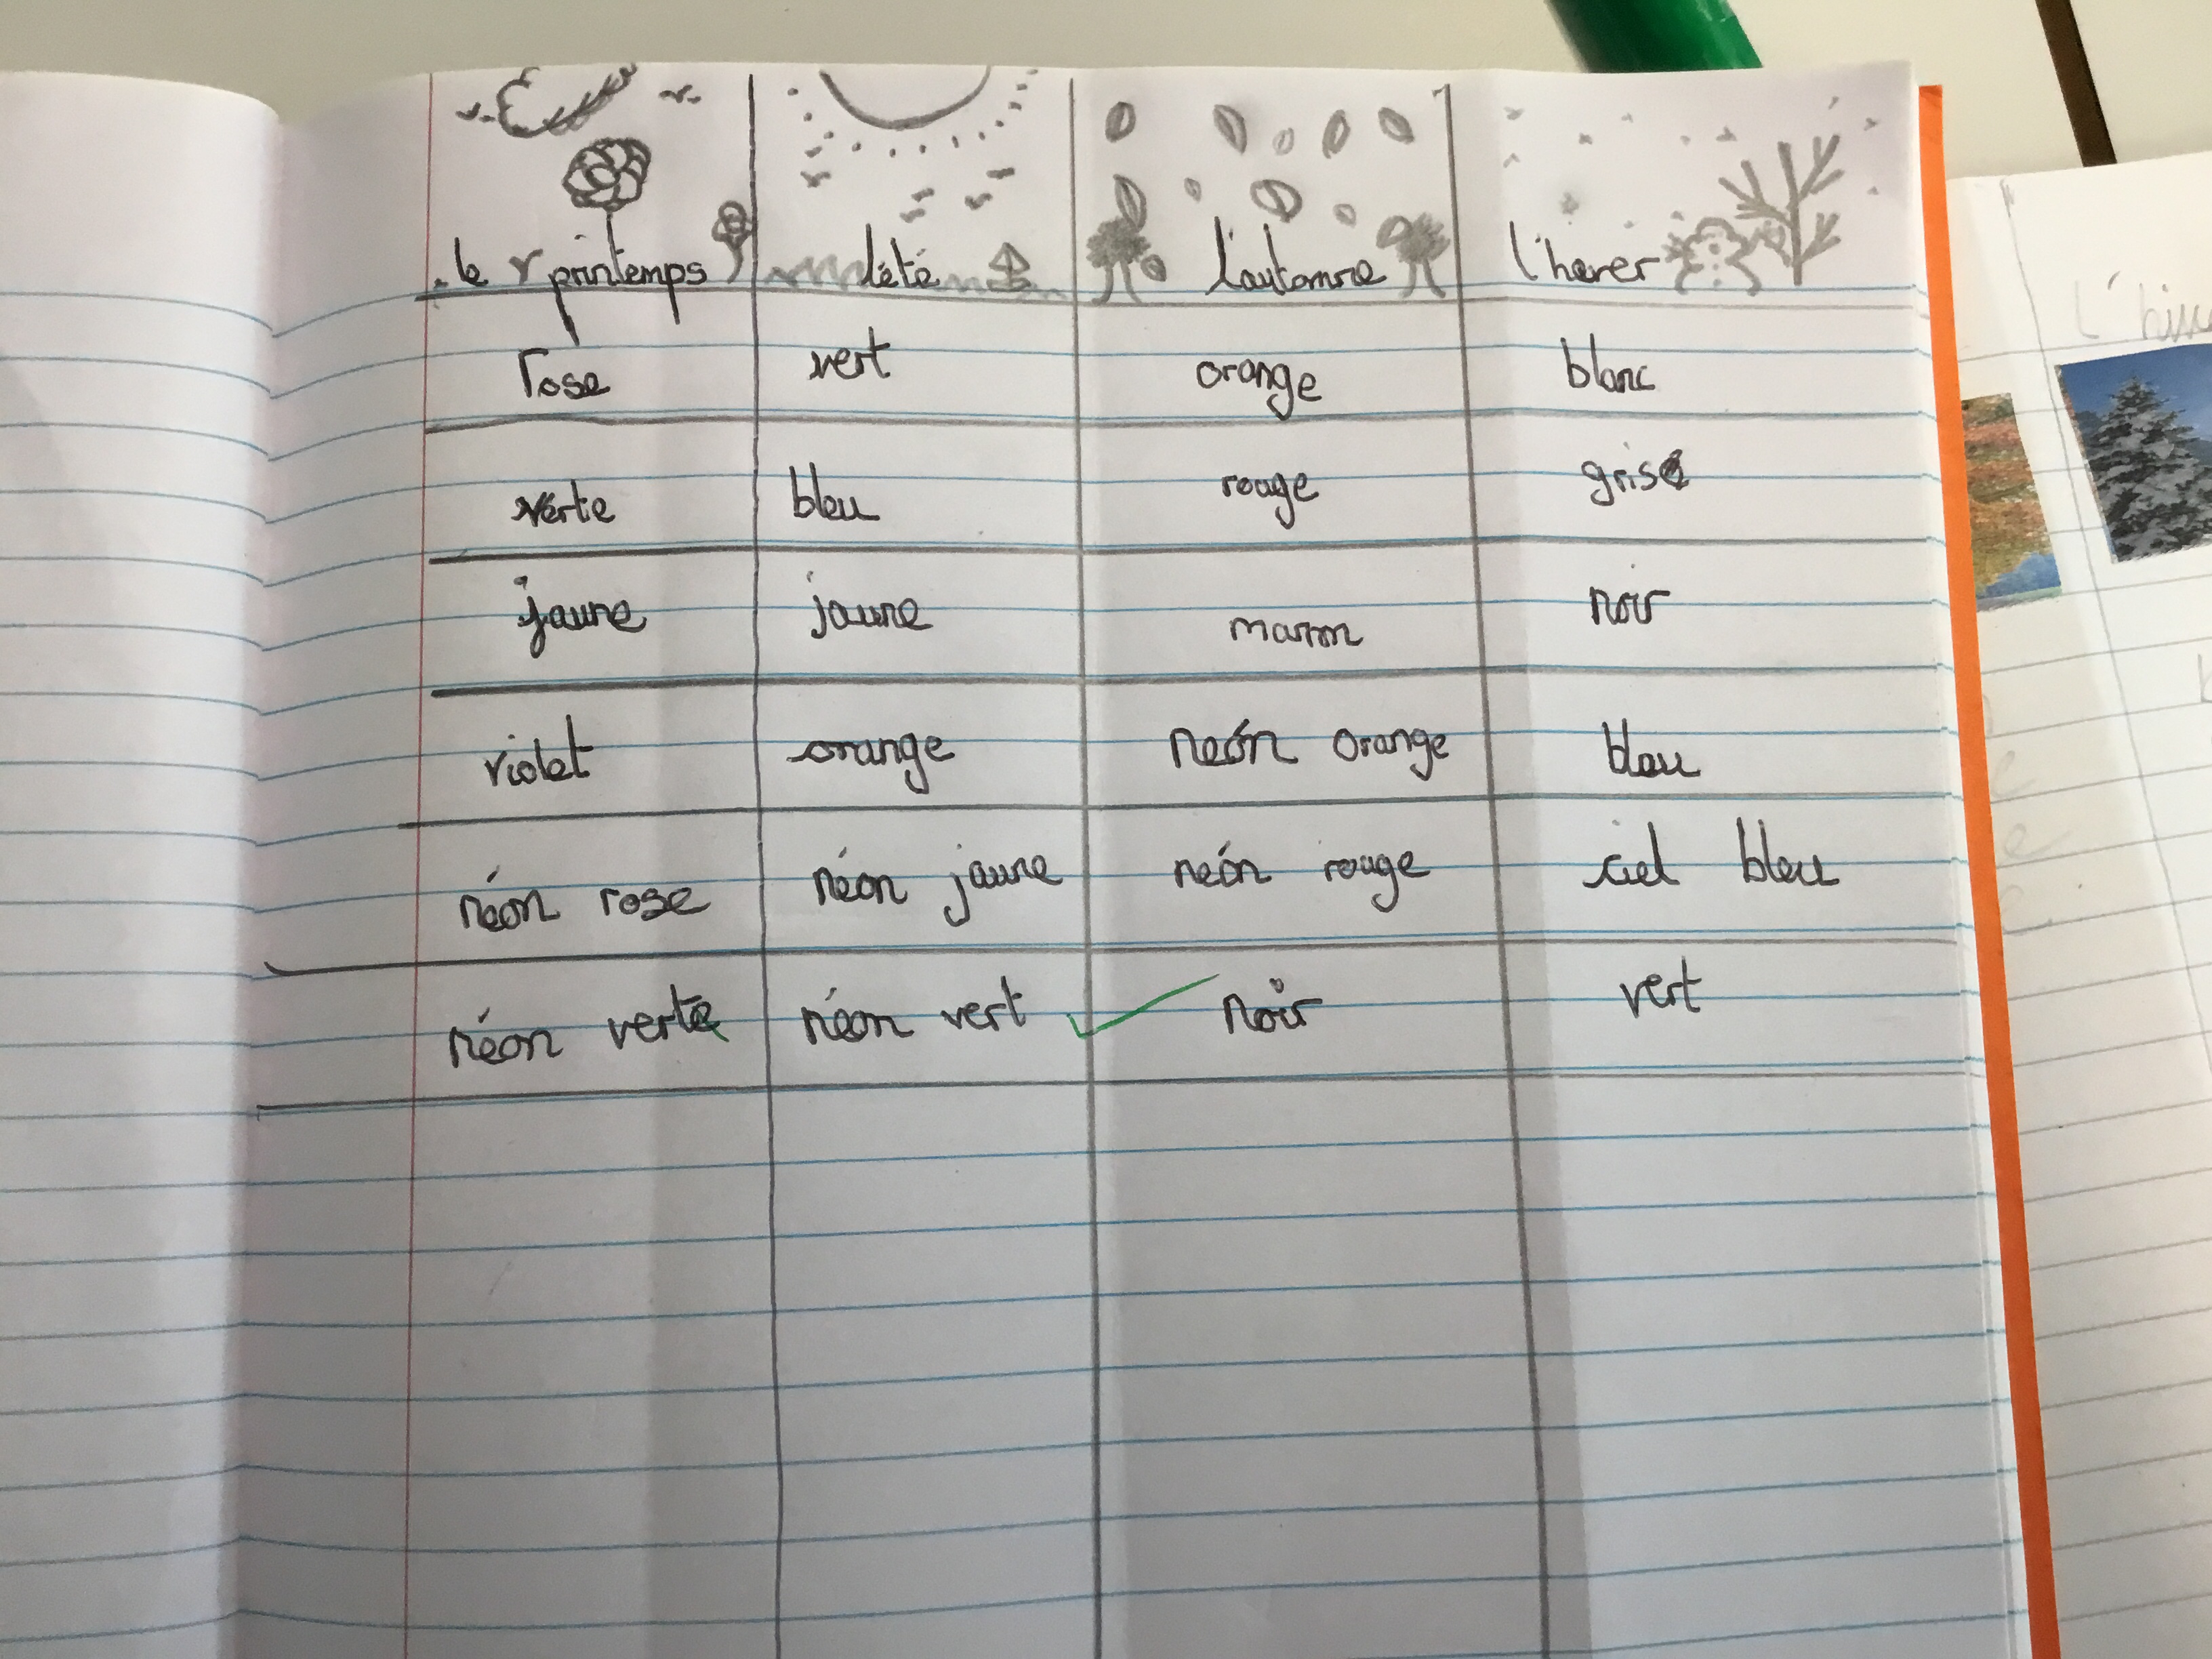 le printemps l'été l'automne l'hever
rose vert orange blanc
verte bleu rouge gris
jaune jaune marron noir
violet orange neón orange bleu
néon rose néon jaune neón rouge ciel bleu
néon verte néon vert noir vert